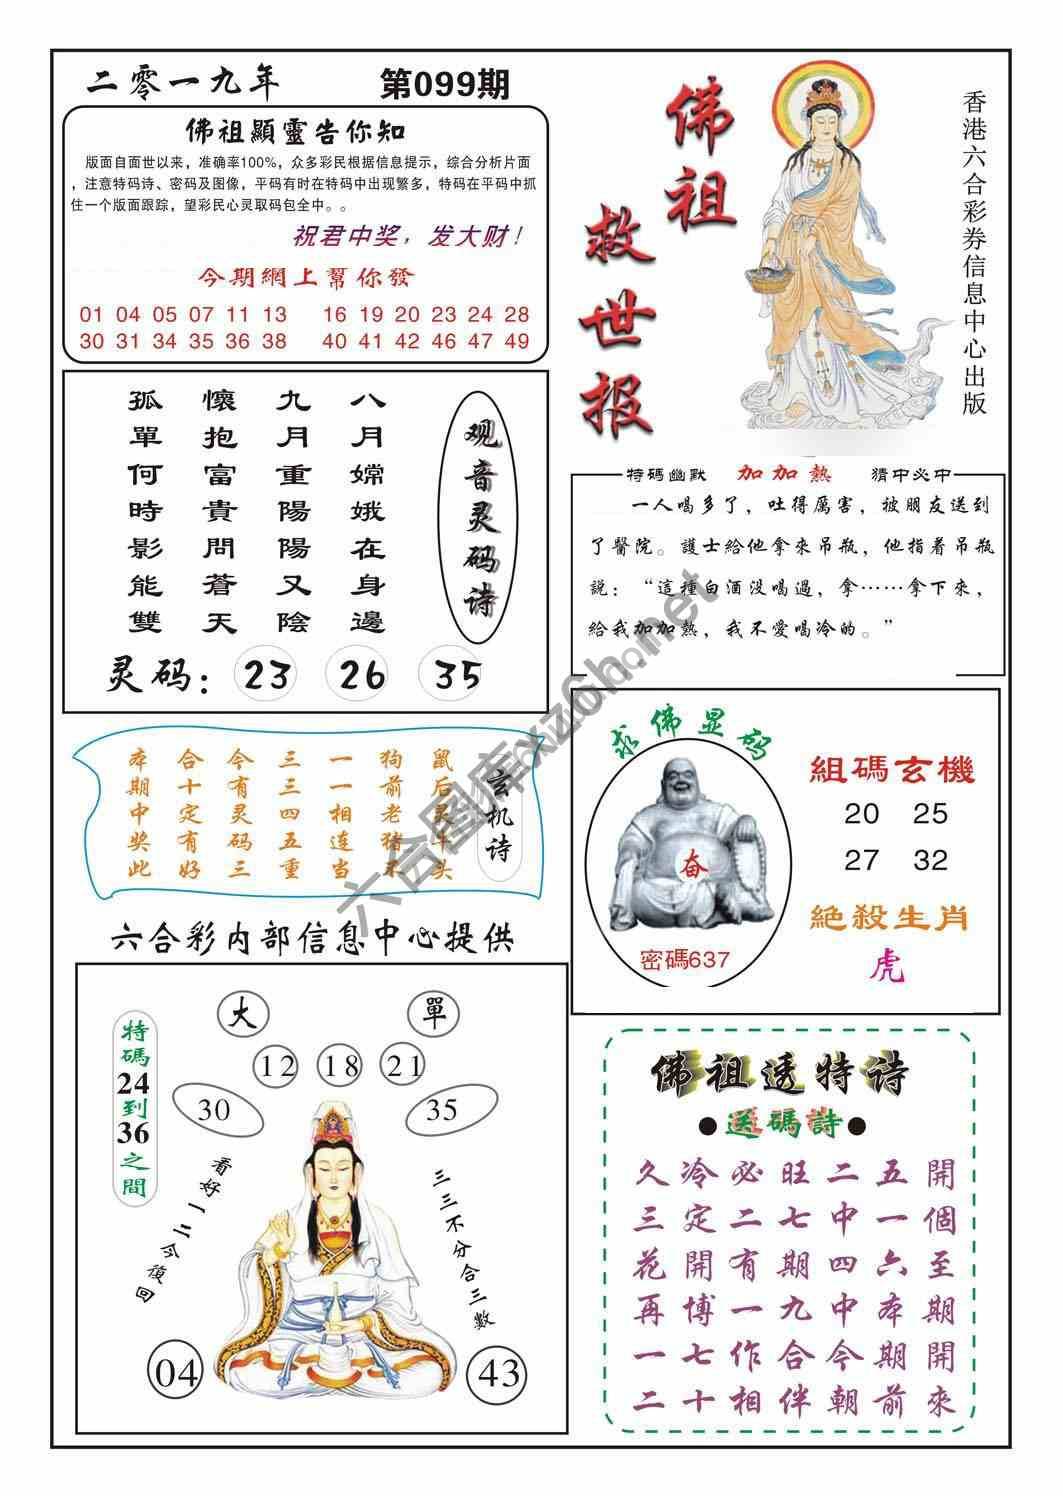 二零一九年
第099期
佛祖顯靈告你知
版面自面世以来，准确率100%，众多彩民根据信息提示，综合分析片面
，注意特码诗、密码及图像，平码有时在特码中出现繁多，特码在平码中抓
住一个版面跟踪，望彩民心灵取码包全中。。
祝君中奖，发大财！
今期網上幫你發
01 04 05 07 11 13 16 19 20 23 24 28
30 31 34 35 36 38 40 41 42 46 47 49
佛祖救世报
香港六合彩券信息中心出版
观音灵码诗
八月嫦娥在身邊
九月重陽陽又陰
懷抱富貴問蒼天
孤單何時影能雙
灵码：23 26 35
特碼幽默 加加熱 猜中必中
一人喝多了，吐得厲害，被朋友送到
了醫院。護士給他拿來吊瓶，他指着吊瓶
説：“這種白酒没喝過，拿……拿下來，
給我加加熱，我不愛喝冷的。”
玄机诗
鼠后灵牛头
狗前老猪末
一一相连当
三三四五重
今有灵码三
合十定有好
本期中奖此
求佛显码
奋
密碼637
組碼玄機
20 25
27 32
絕殺生肖
虎
六合彩内部信息中心提供
大 單
12 18 21
30 35
特碼24到36之間
看好一二今復回
三三不分合三數
04 43
佛祖透特诗
●送碼詩●
久冷必旺二五開
三定二七中一個
花開有期四六至
再博一九中本期
一七作合今期開
二十相伴朝前來
六合图库xz6h.net